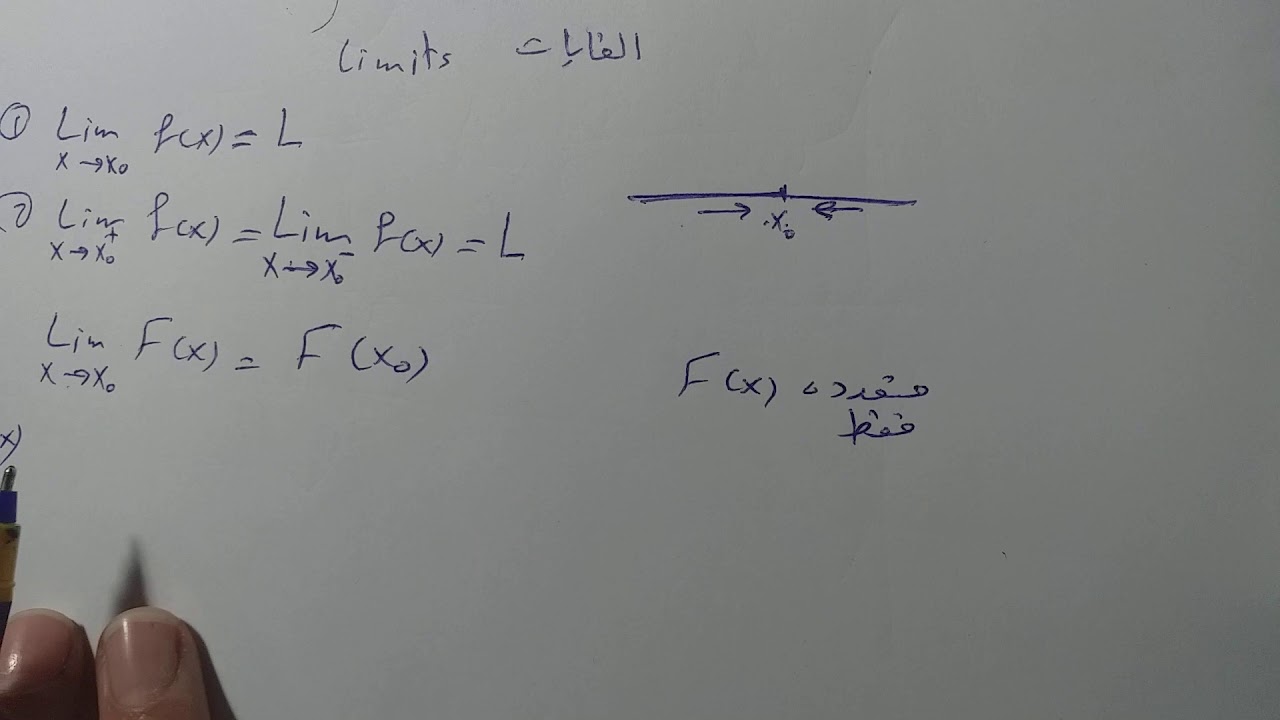 Limits الغايات
① Lim x→x₀ f(x) = L
② Lim x→x₀⁺ f(x) = Lim x→x₀⁻ f(x) = L
x₀
Lim x→x₀ F(x) = F(x₀)
F(x)
فقط
x)